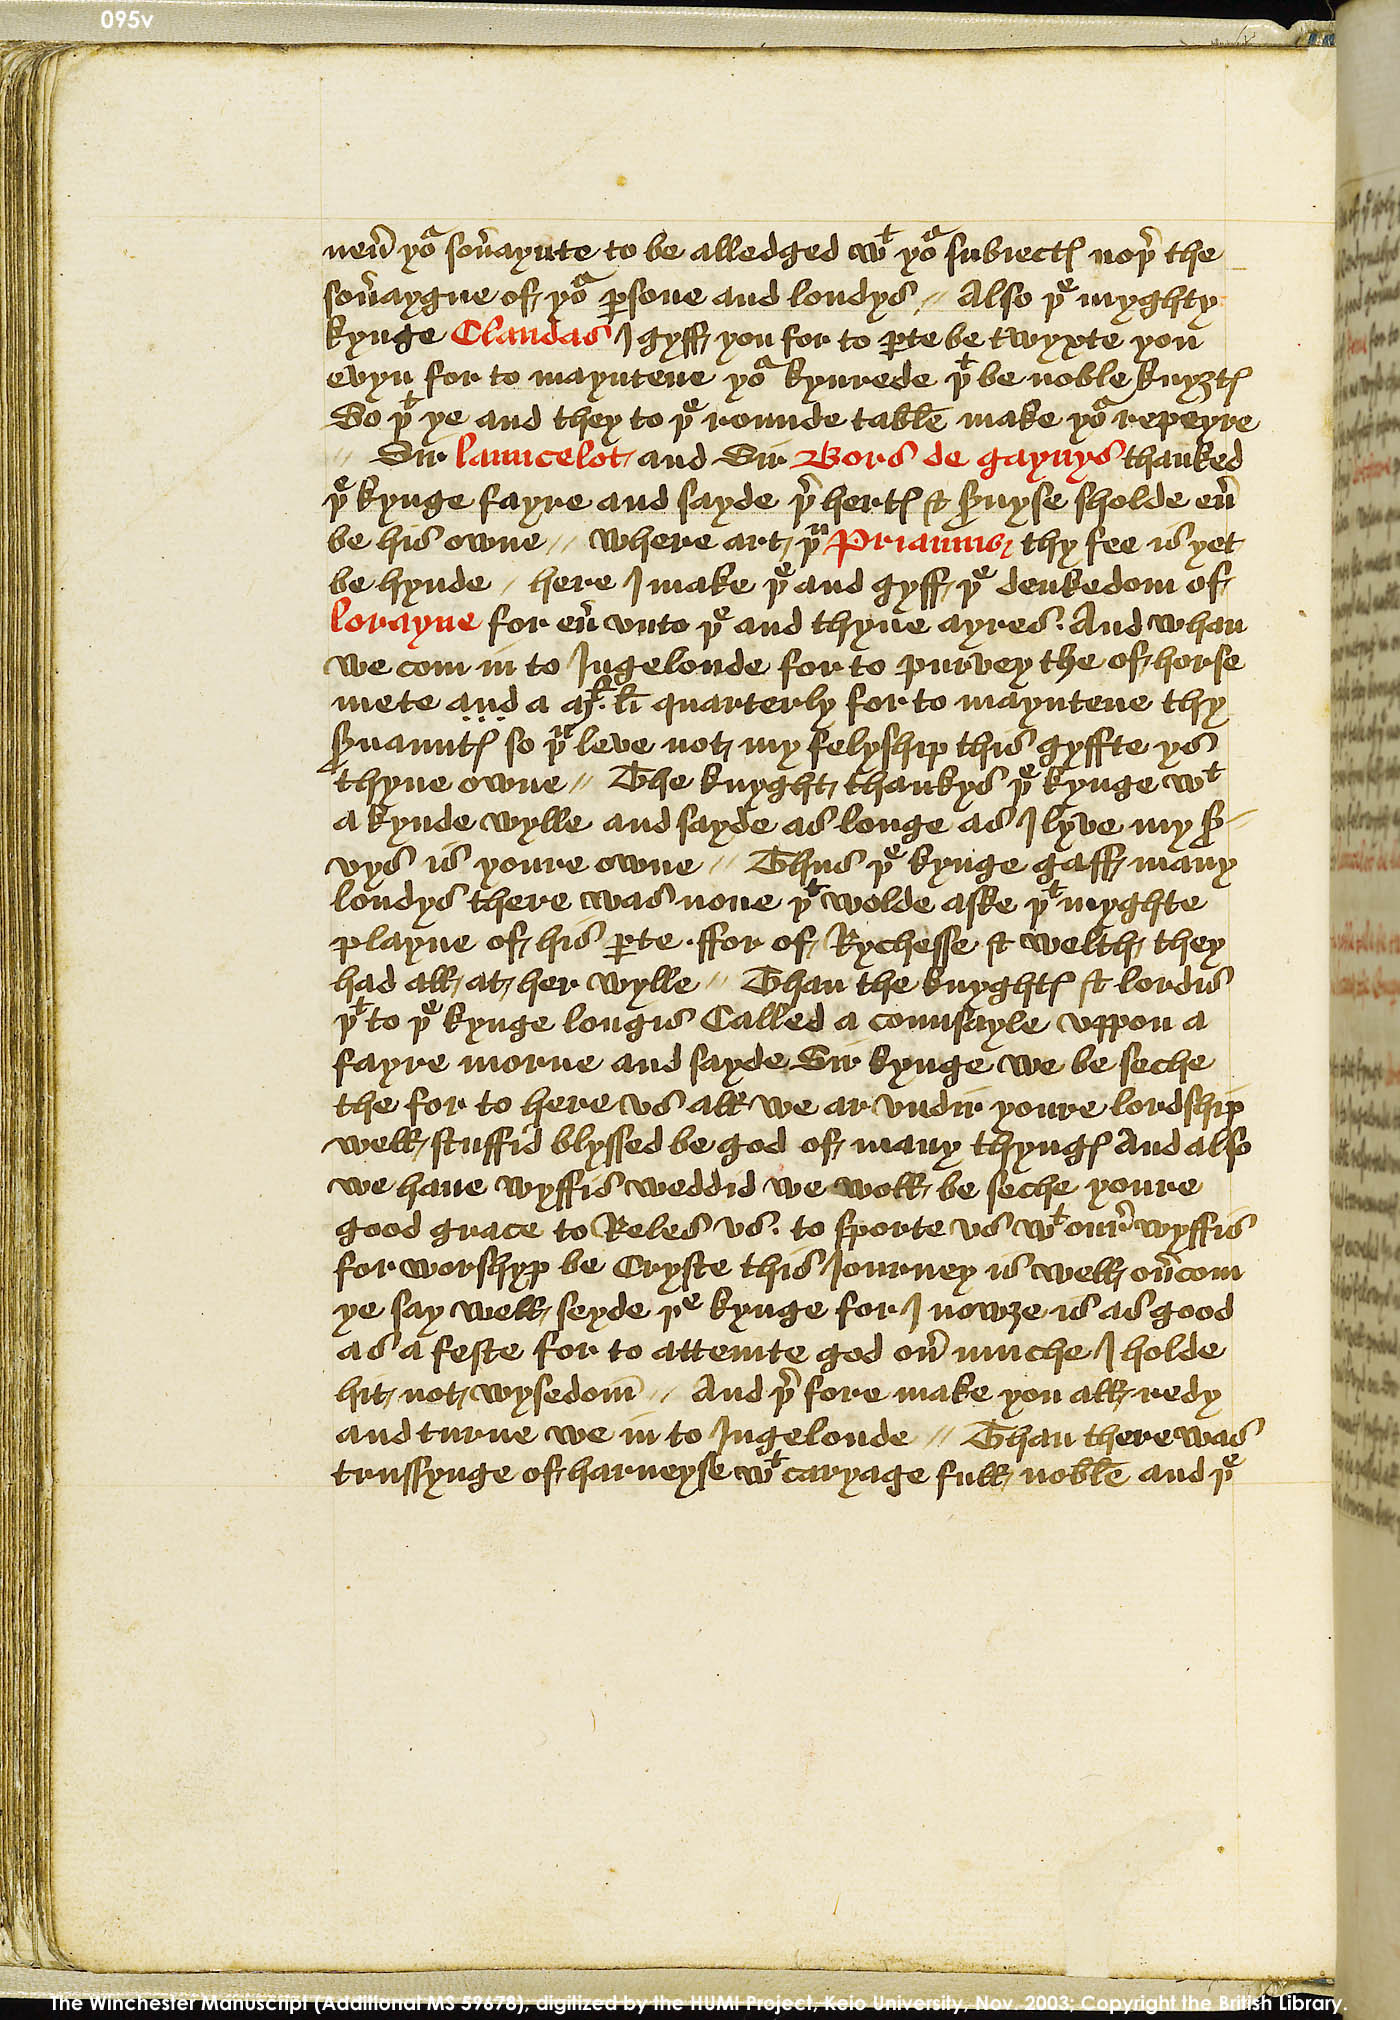 095v
neu̅ yor sou̅aynte to be alledged wt yor subiectꝭ noþr the
sou̅aygne of yor ꝑsone and londys // Also þe myghty
kynge Claudas I gyff you for to ꝑte be twyxte you
evyn for to mayntene yor kynrede þt be noble knyȝtꝭ
So þt ye and they to þe rounde table make yor repeyre
// Sir launcelot and Sir Bors de gaynys thanked
þe kynge fayre and sayde þr hertꝭ & ẜuyse sholde eu̅
be his owne // where art þu Priamus thy fee is yet
be hynde / here I make þe and gyff þe deukedom of
lorayne for eu̅ vnto þe and thyne ayres. And whan
we com in to Ingelonde for to purvey the of horse
mete and a li quarterly for to mayntene thy
ẜuauntꝭ so þu leve not my felyship this gyffte ys
thyne owne // The knyght thankys þe kynge wt
a kynde wylle and sayde as longe as I lyve my ẜ=
vys is youre owne // Thus þe kynge gaff many
londys there was none þt wolde aske þt myghte
playne of his ꝑte . ffor of Rychesse & welth they
had all at her wylle // Than the knyghtꝭ & lordis
þt to þe kynge longis Called a counsayle vppon a
fayre morne and sayde Sir kynge we be seche
the for to here vs all we ar vndir youre lordship
well stuffid blyssed be god of many thyngꝭ And also
we haue wyffis weddid we woll be seche youre
good grace to Reles vs. to sporte vs wt our wyffis
for worshyp be Cryste this Iourney is well ou̅com
ye say well seyde þe kynge for I nowȝe is as good
as a feste for to attemte god ou̅ muche I holde
hit not wysedom // And þr fore make you all redy
and turne we in to Ingelonde // Than there was
trussynge of harneyse wt caryage full noble and þe
The Winchester Manuscript (Additional MS 59678), digitized by the HUMI Project, Keio University, Nov. 2003; Copyright the British Library.